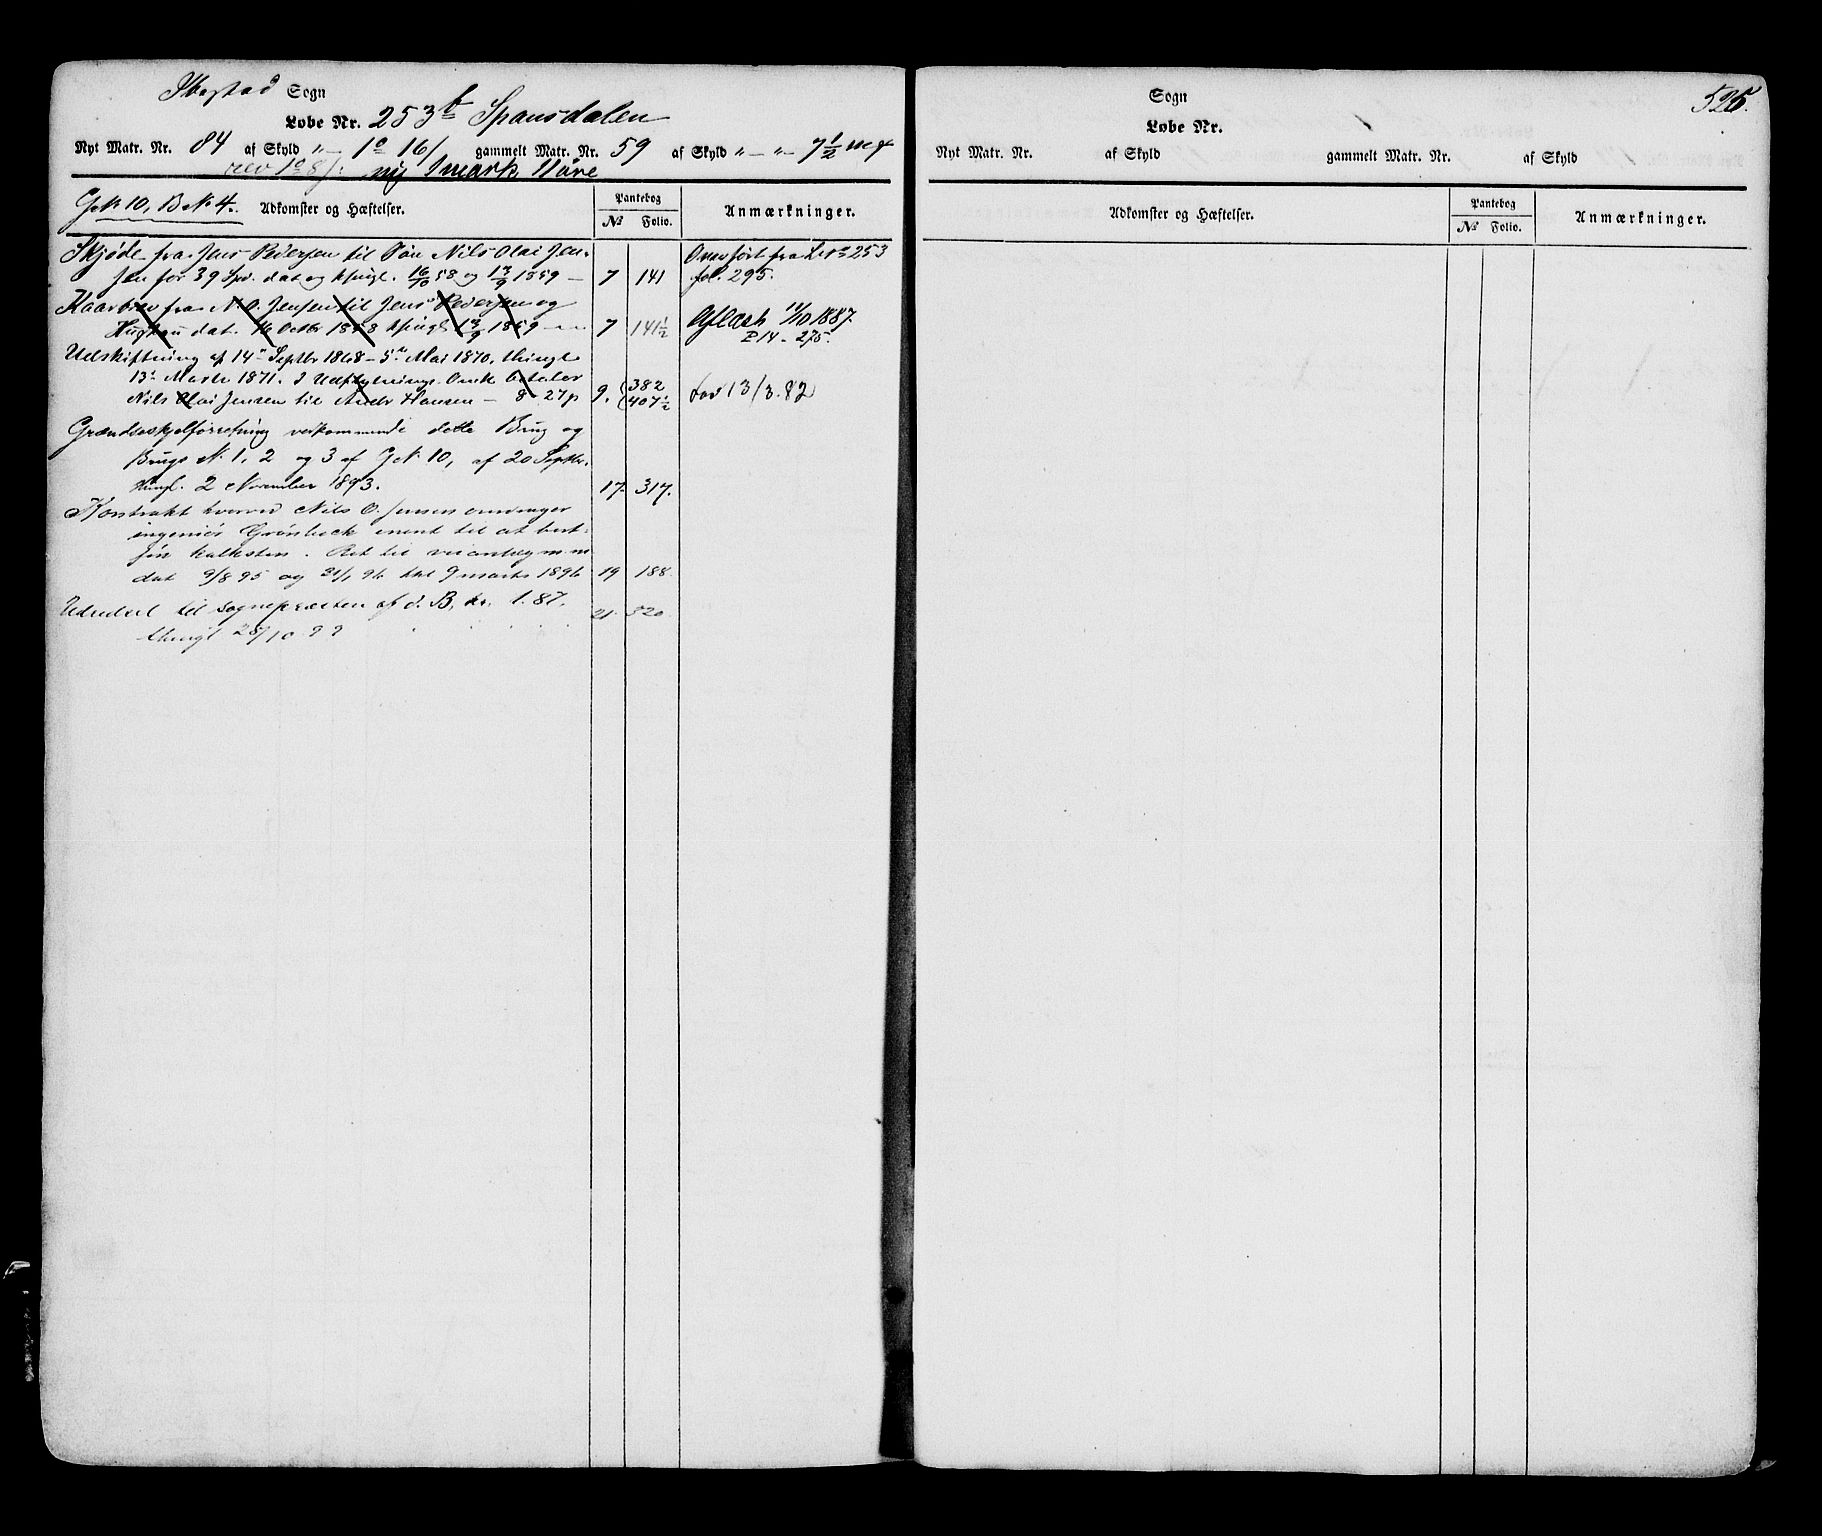 Ibestad Sogn
Løbe Nr. 253 b Spansdalen
Nyt Matr. Nr. 84 af Skyld " — 1 o 16/ gammelt Matr. Nr. 59 af Skyld " — " — 7 1/2 mg
rev 1 o 8/: ny 1 mark 11 øre
G. N. 10, B. N. 4. Adkomster og Hæftelser. Pantebog № Folio. Anmærkninger.
Skjøde fra Jens Pedersen til Søn Nils Olai Jen- Overført fra L. nr 253
sen for 39 Spd. dat og thingl. 16/10 58 og 13/9 1859 — 7 141 fol. 295.
Kaarbrev fra N. O. Jensen til Jens Pedersen og
Hustru dat. 16 Octbr 1858 thingl 13/9 1859 — 7 141 1/2 Aflæst 11/10 1887. P 14 - 275.
Udskiftning af 14de Septbr 1868 - 5te Mai 1870, thingl
13de Marts 1871. I Udflytnings Omk betaler 9. 382
Nils Olai Jensen til Andr Hansen — 8 - 27 p 407 1/2 13/3. 82
Grændseskjelforretning vedkommende dette Brug og
Brugs N. 1, 2 og 3 af G. N. 10, af 20 Septbr.
thingl. 2 November 1893. 17. 317.
Kontrakt hvorved Nils O. Jensen
ingeniør Grønbeck eneret til at
kalksten. Ret til veianlæg m. m
dat 9/8 95 og 31/1 96 thl 9 marts 1896 19 188.
Udredsel til sognepresten af d. B, kr. 1.87. 21. 520.
thingl 25/10 99
Sogn 525.
Løbe Nr.
Nyt Matr. Nr. af Skyld gammelt Matr. Nr. af Skyld
Adkomster og Hæftelser. Pantebog № Folio. Anmærkninger.